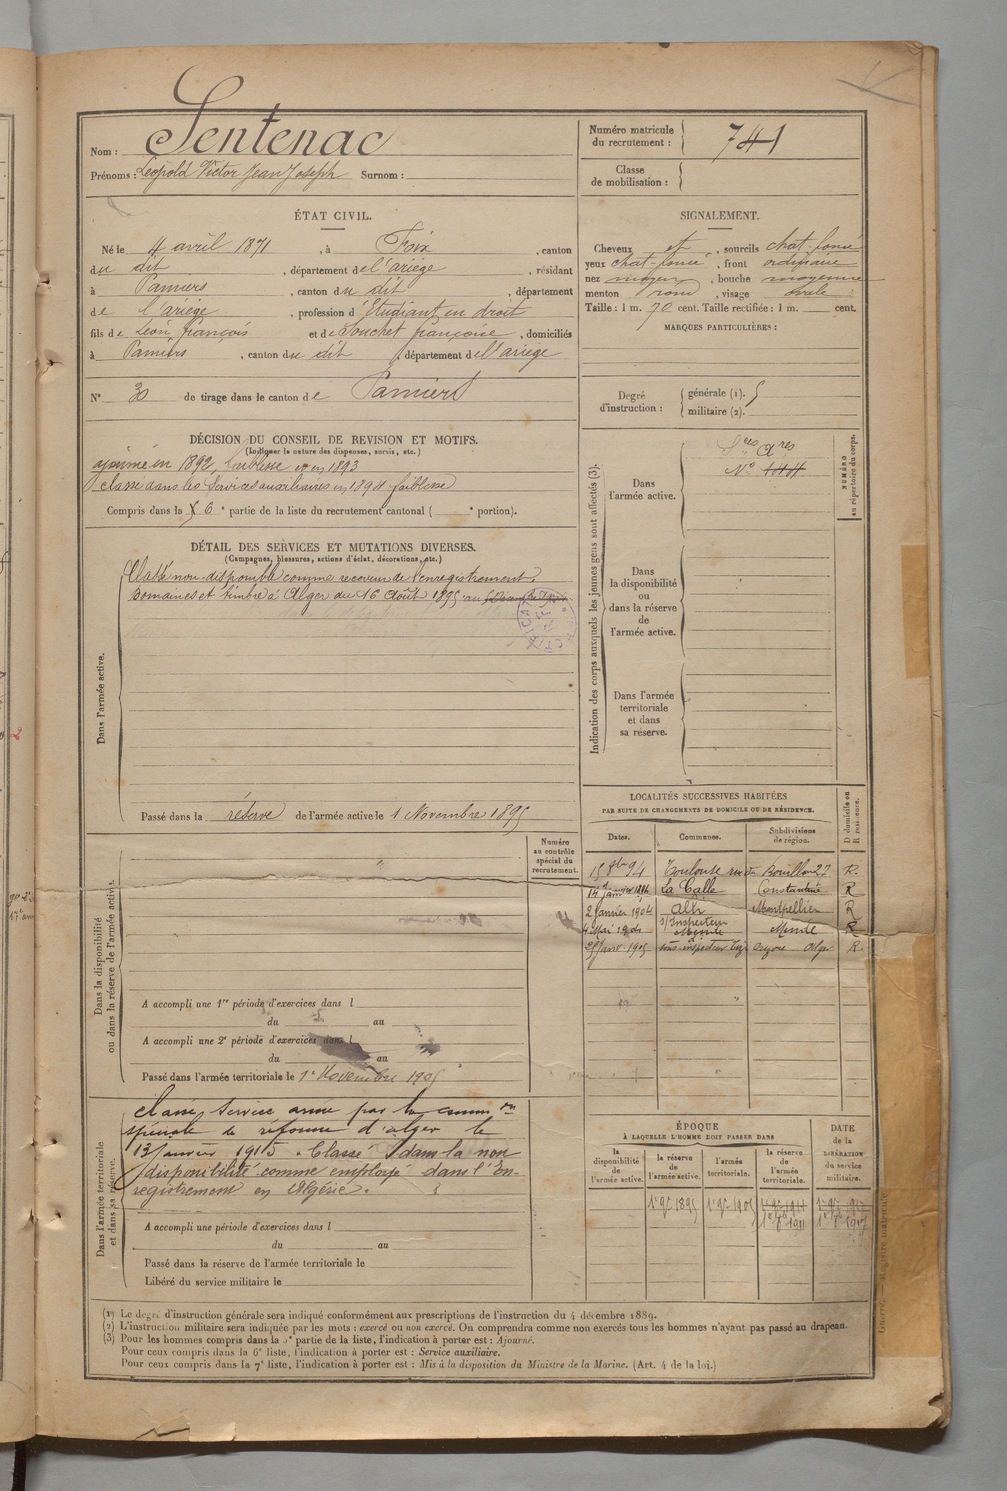 Nom : Sentenac
Prénoms : Léopold Victor Jean Joseph Surnom :
Numéro matricule
du recrutement : 741
Classe
de mobilisation :
ÉTAT CIVIL.
Né le 4 avril 1871, à Foix, canton
du dit, département de l'ariège, résidant
à Pamiers, canton du dit, département
de l'ariège, profession d'Etudiant en droit
fils de Léon françois et de Souchet françoise, domiciliés
à Pamiers, canton du dit, département de l'ariège
N° 30 de tirage dans le canton de Pamiers
SIGNALEMENT.
Cheveux et, sourcils chat-foncé
yeux chat-foncé, front ordinaire
nez moyen, bouche moyenne
menton rond, visage ovale
Taille : 1 m. 70 cent. Taille rectifiée : 1 m. cent.
MARQUES PARTICULIÈRES :
Degré
d'instruction :
générale (1).
militaire (2).
DÉCISION DU CONSEIL DE REVISION ET MOTIFS.
(Indiquer la nature des dispenses, sursis, etc.)
ajourné en 1892, faiblesse et en 1893
classé dans les Services auxiliaires en 1894 faiblesse
Compris dans la 6e partie de la liste du recrutement cantonal ( e portion).
DÉTAIL DES SERVICES ET MUTATIONS DIVERSES.
(Campagnes, blessures, actions d'éclat, décorations, etc.)
Classé non-disponible comme receveur de l'enregistrement,
Domaines et timbre à Alger du 16 Août 1895 au
Dans l'armée active.
Passé dans la réserve de l'armée active le 1 Novembre 1895
Indication des corps auxquels les jeunes gens sont affectés (3).
NUMÉRO
au répertoire du corps.
Dans
l'armée active.
Sces Ares
N° 144
Dans
la disponibilité
ou
dans la réserve
de
l'armée active.
Dans l'armée
territoriale
et dans
sa réserve.
LOCALITÉS SUCCESSIVES HABITÉES
PAR SUITE DE CHANGEMENTS DE DOMICILE OU DE RÉSIDENCE.
D domicile ou
R résidence.
Dates. Communes. Subdivisions
de région.
15 8bre 94 Toulouse rue du Rouillon 27 R.
14 Janvier 1896 La Calle Constantine R
2 Janvier 1904 Montpellier R
4 Mai 1904 s/Inspecteur Mende Mende R
25 Janv. 1905 sous-inspecteur Tizi Ouzou Alger R.
Numéro
au contrôle
spécial du
recrutement.
Dans la disponibilité
ou dans la réserve de l'armée active.
A accompli une 1re période d'exercices dans l
du au
A accompli une 2e période d'exercices dans l
du au
Passé dans l'armée territoriale le 1er Novembre 1905
Dans l'armée territoriale
et dans sa réserve.
Classé Service armé par la comm on
spéciale de réforme d'alger le
13 Janvier 1915. Classé dans la non
disponibilité comme employé dans l'En-
registrement en Algérie.
A accompli une période d'exercices dans l
du au
Passé dans la réserve de l'armée territoriale le
Libéré du service militaire le
ÉPOQUE
À LAQUELLE L'HOMME DOIT PASSER DANS
DATE
de la
LIBÉRATION
du service
militaire.
la
disponibilité
de
l'armée active.
la réserve
de
l'armée active.
l'armée
territoriale.
la réserve
de
l'armée
territoriale.
1er 9bre 1895 1er 9bre 1905
(1) Le degré d'instruction générale sera indiqué conformément aux prescriptions de l'instruction du 4 décembre 1889.
(2) L'instruction militaire sera indiquée par les mots : exercé ou non exercé. On comprendra comme non exercés tous les hommes n'ayant pas passé au drapeau.
(3) Pour les hommes compris dans la 5e partie de la liste, l'indication à porter est : Ajourné.
Pour ceux compris dans la 6e liste, l'indication à porter est : Service auxiliaire.
Pour ceux compris dans la 7e liste, l'indication à porter est : Mis à la disposition du Ministre de la Marine. (Art. 4 de la loi.)